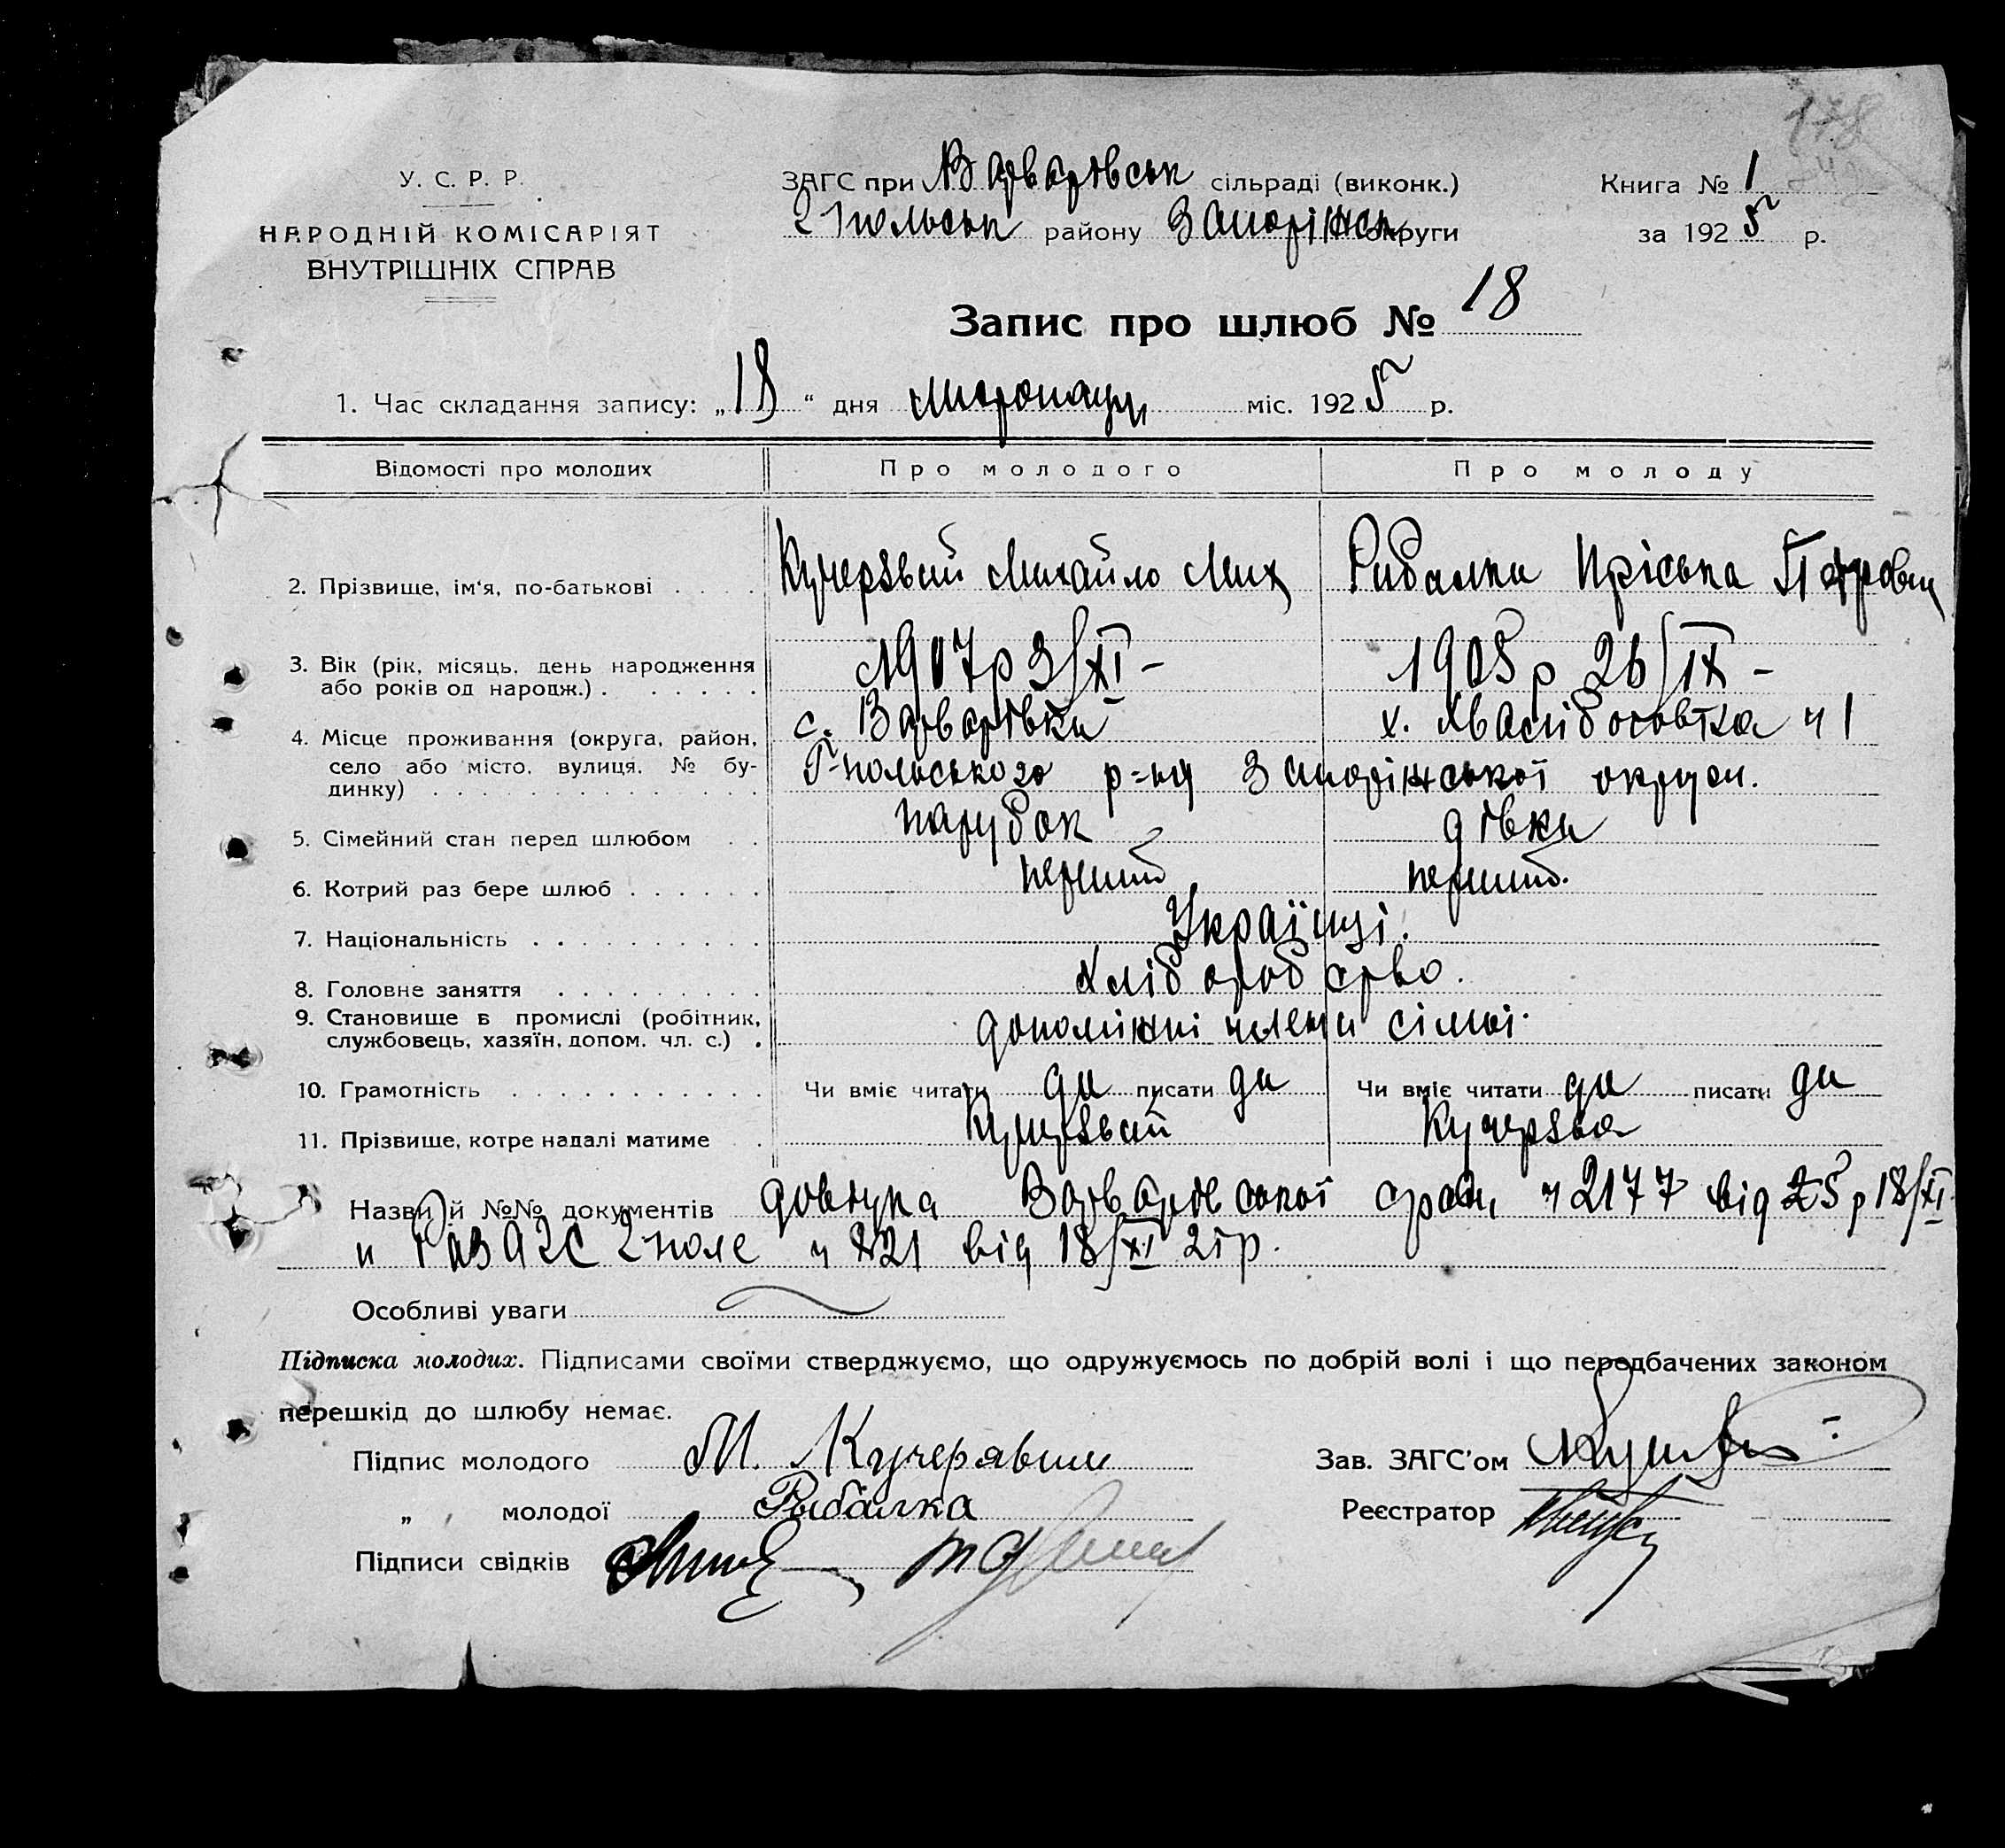 178
У. С. Р. Р.
НАРОДНІЙ КОМІСАРІЯТ
ВНУТРІШНІХ СПРАВ
ЗАГС при Варварівськ сільраді (виконк.)
Гпольськ району Запоріжськ округи
Книга № 1
за 1925 р.
Запис про шлюб № 18
1. Час складання запису: „18“ дня листопаду міс. 1925 р.
Відомості про молодих Про молодого Про молоду
2. Прізвище, ім'я, по-батькові Кучерявий Михайло Мих Рибалка Пріська Петровн
3. Вік (рік, місяць, день народження
або років од народж.) 1907 р 3/XI– 1905 р 26/IX–
4. Місце проживання (округа, район, с. Варварівка х. №1
село або місто, вулиця, № бу-
динку) Г-польського р-ну Запоріжської округи.
5. Сімейний стан перед шлюбом парубок дівка
6. Котрий раз бере шлюб перший перший.
7. Національність Українці.
8. Головне заняття Хліборобство.
9. Становище в промислі (робітник,
службовець, хазяїн, допом. чл. с.) допоміжні члени сімьі.
10. Грамотність Чи вміє читати да писати да Чи вміє читати да писати да
11. Прізвище, котре надалі матиме Кучерявий Кучерява
Назви й №№ документів довідка Варварівської сради ч 2177 від 25 р 18/XI
ч 221 від 18/XI 25 р.
Особливі уваги
Підписка молодих. Підписами своїми стверджуємо, що одружуємось по добрій волі і що передбачених законом
перешкід до шлюбу немає.
Підпис молодого М. Кучерявий
„ молодої Рыбалка
Підписи свідків
Зав. ЗАГС'ом
Реєстратор